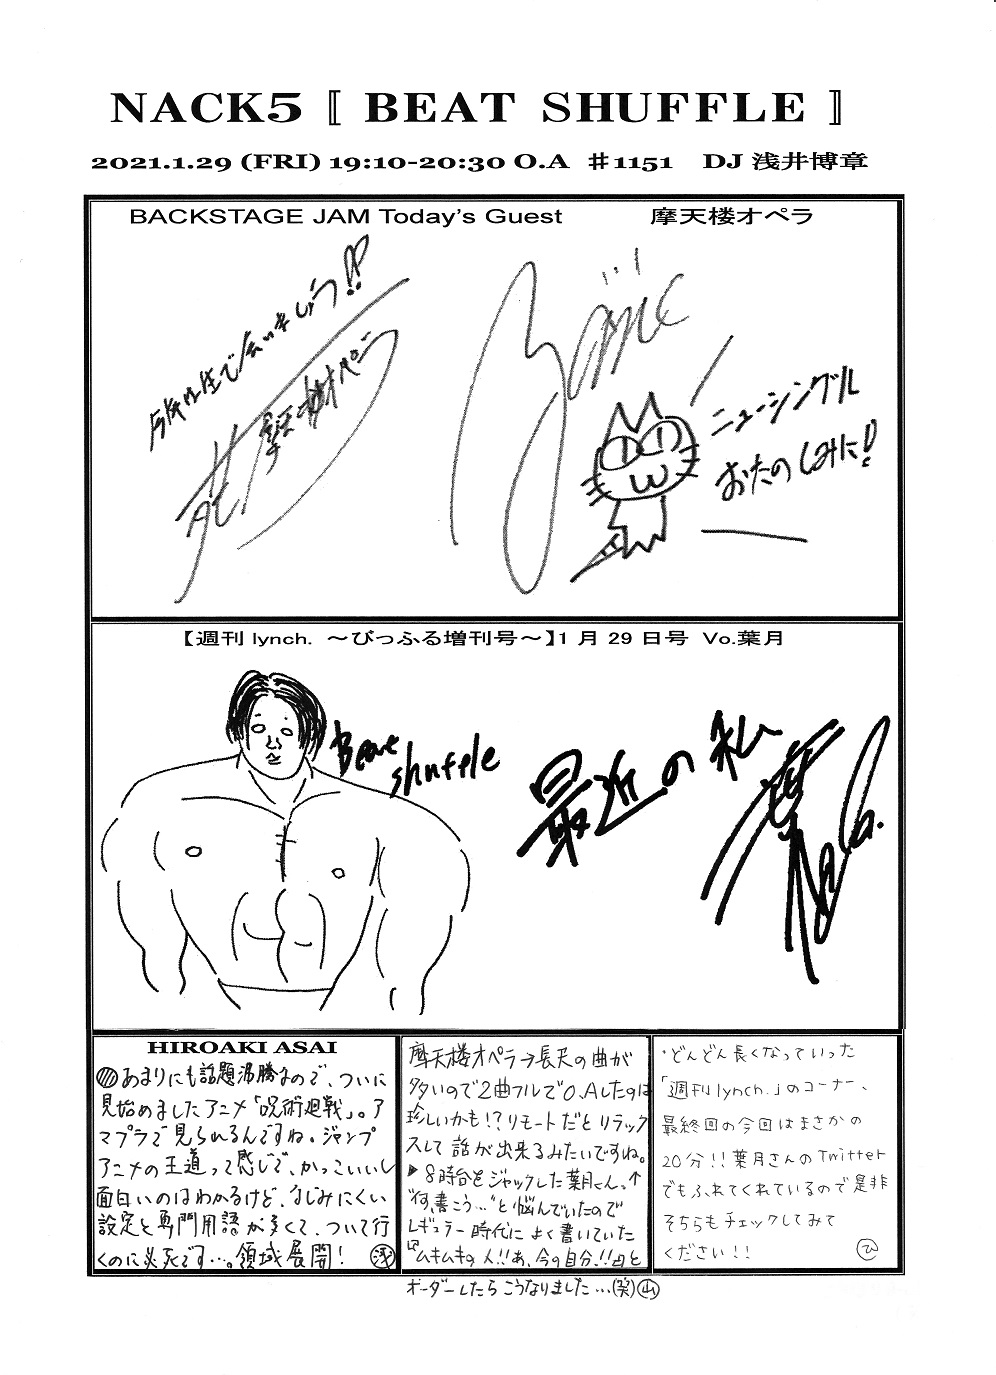 NACK5 〚 BEAT SHUFFLE 〛
2021.1.29 (FRI) 19:10-20:30 O.A ＃1151 DJ 浅井博章
BACKSTAGE JAM Today's Guest 摩天楼オペラ
で会いましょう!!
摩天楼オペラ
苑
ニューシングル
おたのしみに!
【週刊 lynch. ～びっふる増刊号～】1 月 29 日号 Vo.葉月
Beat
shuffle
最近の私
葉月
HIROAKI ASAI
あまりにも話題沸騰なので、ついに
見始めましたアニメ「呪術廻戦」。ア
マプラで見られるんですね。ジャンプ
アニメの王道って感じで、かっこいいし
面白いのはわかるけど、なじみにくい
設定と専門用語が多くて、ついて行
くのに必死です…。領域展開! 浅
摩天楼オペラ→長尺の曲が
多いので2曲フルでO.Aしたのは
珍しいかも!?リモートだとリラック
スして話が出来るみたいですね。
▶8時台をジャックした葉月さん。↑
"何書こう…"と悩んでいたので
レギュラー時代によく書いていた
『ムキムキの人!!あ、今の自分!!』と
オーダーしたらこうなりました…(笑)山
・どんどん長くなっていった
「週刊lynch.」のコーナー、
最終回の今回はまさかの
20分!!葉月さんのTwitter
でもふれてくれているので是非
そちらもチェックしてみて
ください!! ひ